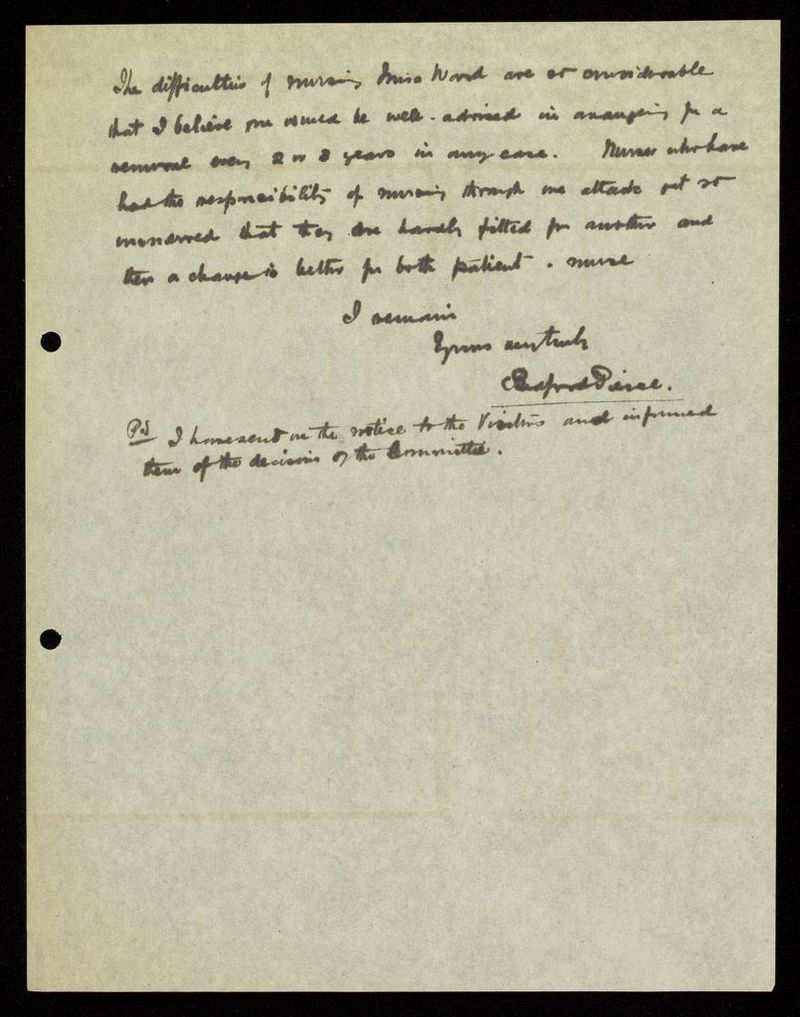 The difficulties of nursing Miss Wood are so considerable
that I believe one would be well-advised in arranging for a
removal every 2 or 3 years in any case. Nurses who have
had the responsibility of nursing through one attack get so
unnerved that they are hardly fitted for another and
then a change is better for both patient & nurse
I remain
Yours very truly
Bedford Pierce.
PS I have sent on the notice to the Visitors and informed
them of the decision of the Committee.